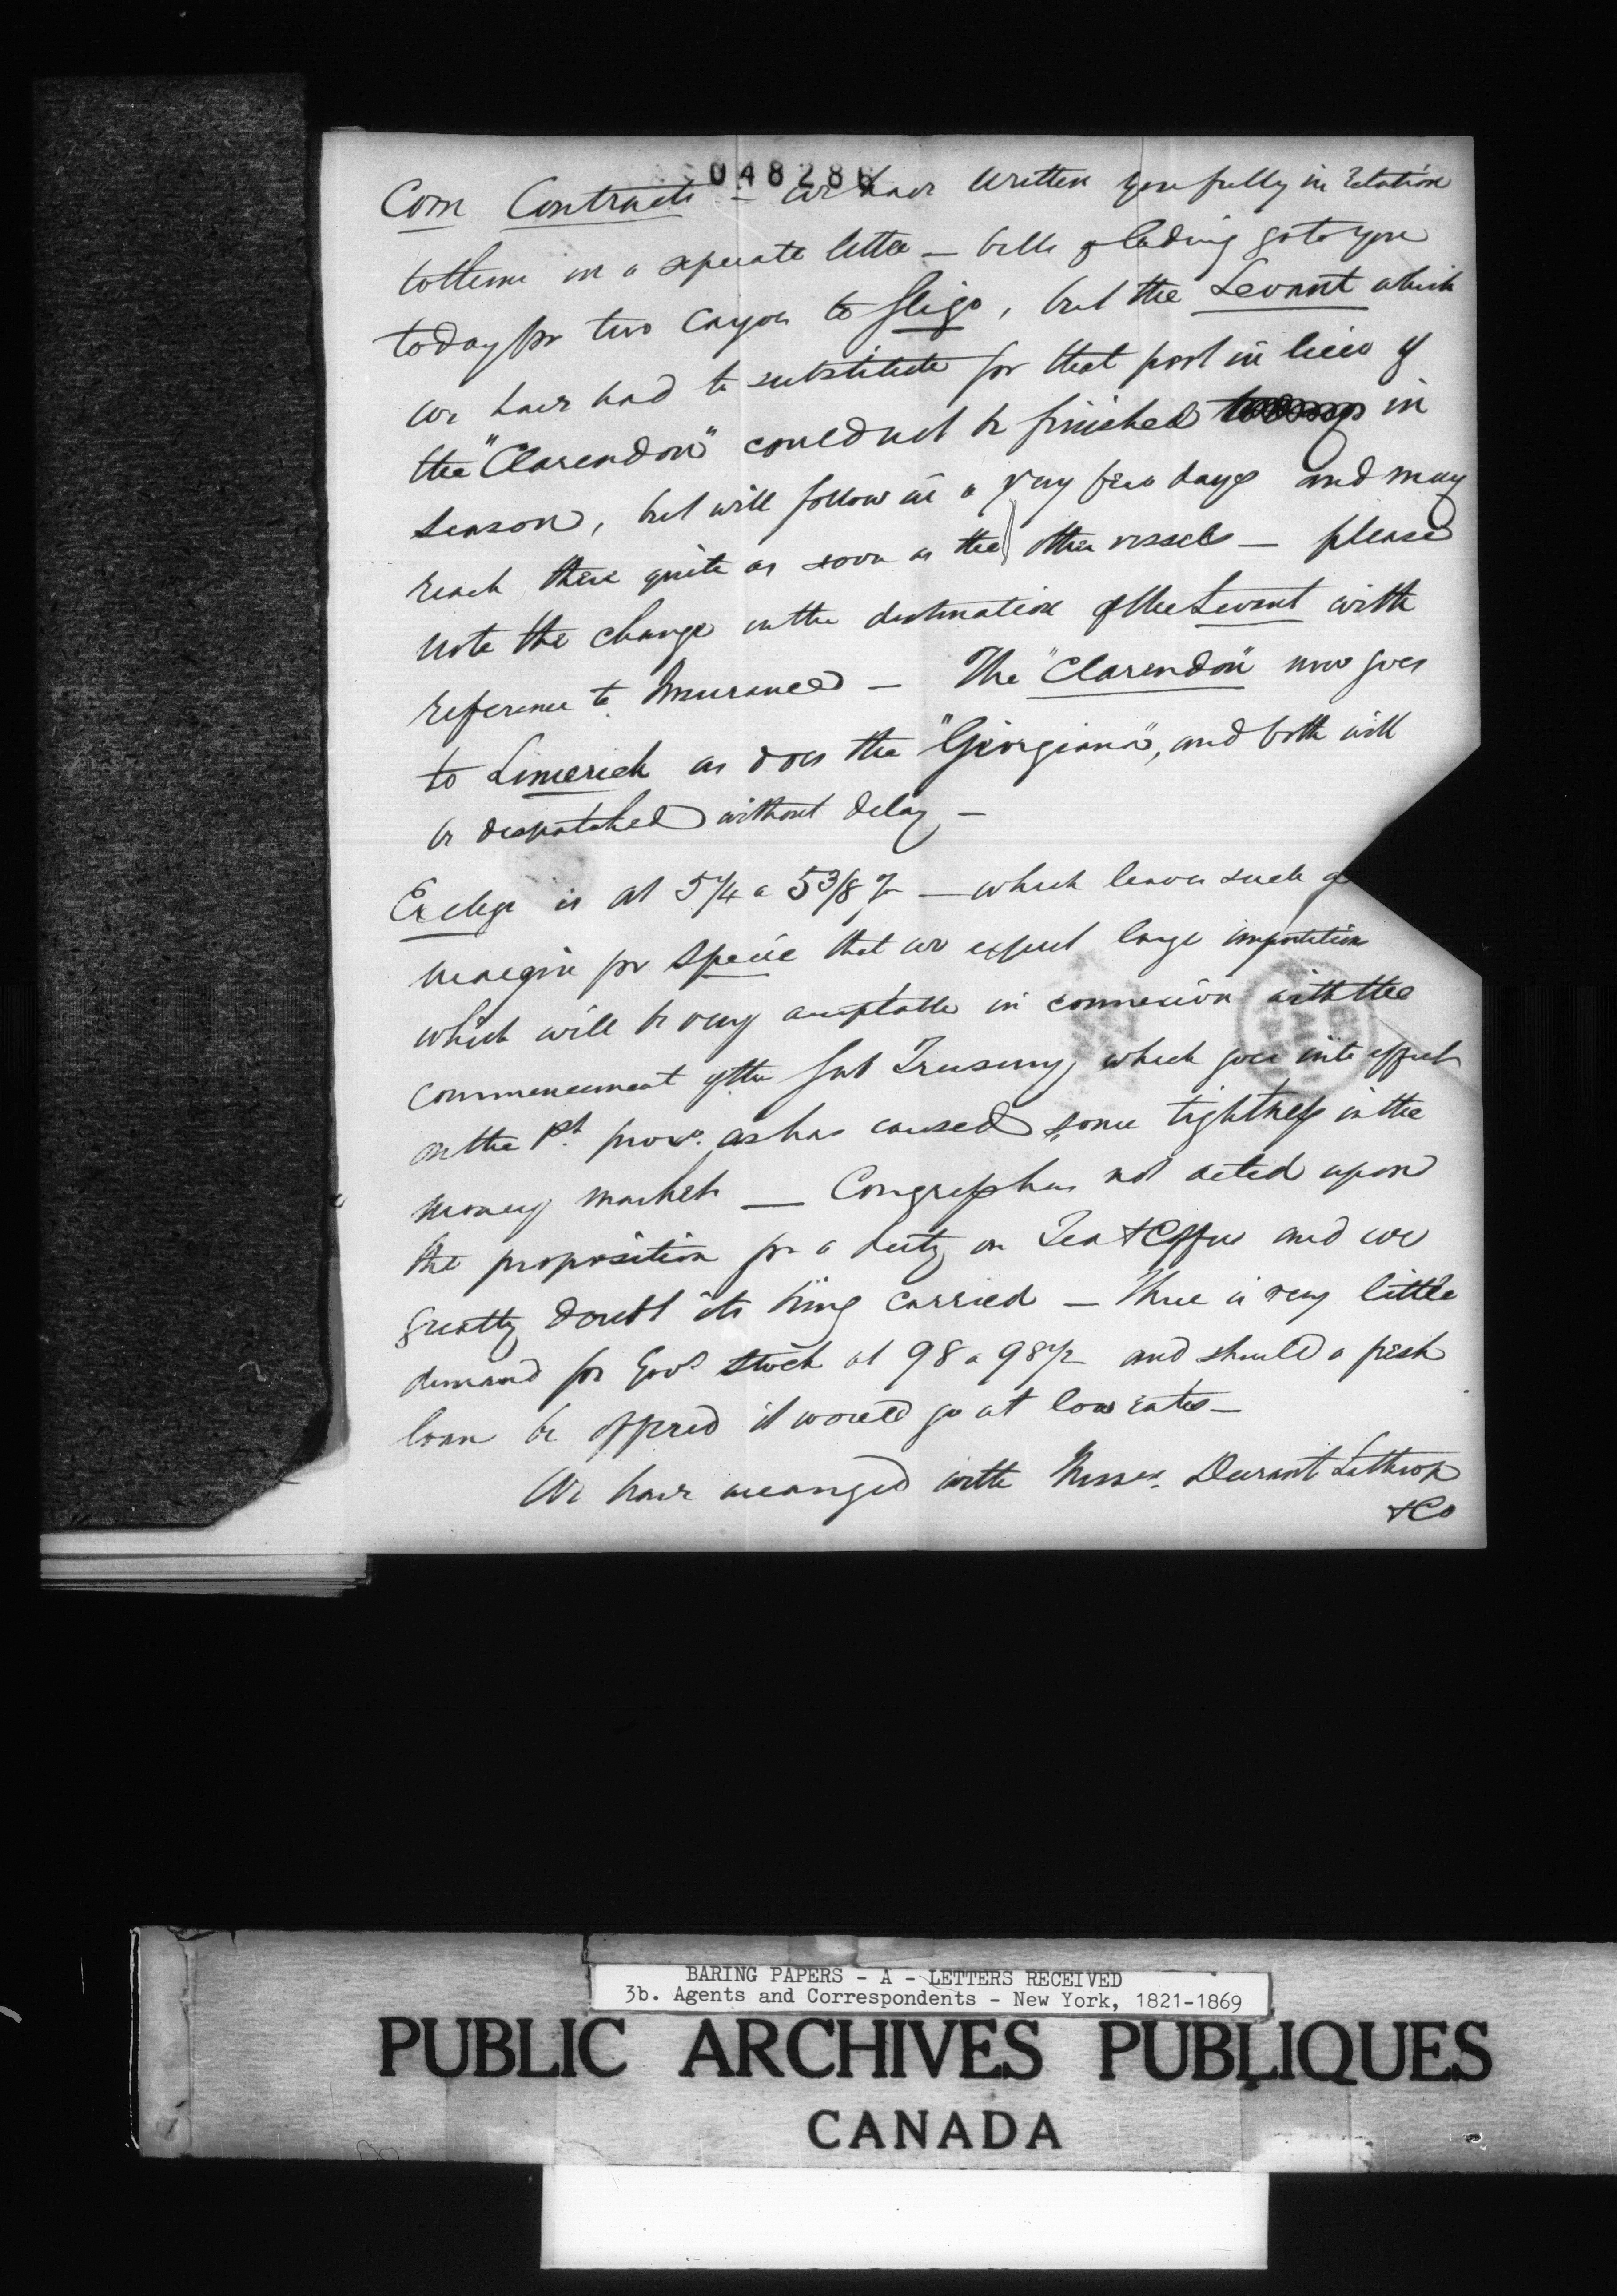 048286
Corn Contracts - We have written you fully in relation
to them in a seperate letter — bills of lading go to you
today for two Cargoes to Sligo, but the Levant which
we have had to substitute for that port in lieu of
the "Clarendon" could not be finished in
season, but will follow in a very few days and may
reach there quite as soon as the other vessels — please
note the change in the destination of the Levant with
reference to Insurance — The "Clarendon" now goes
to Limerick as does the "Georgiana", and both will
be despatched without delay —
Exchge is at 5¼ a 5 3/8 % — which leaves such a
margin for Specie that we expect large importation
which will be very acceptable in connexion with the
commencement of the Sub Treasury, which goes into effect
on the 1st proxo. as has caused some tightness in the
money market — Congress has not acted upon
the proposition for a duty on Tea & Coffee and we
greatly doubt its being carried — There is very little
demand for Govt Stock at 98 a 98½ and should a fresh
loan be offered it would go at low rates —
We have arranged with Messrs. Durant Lathrop
& Co
BARING PAPERS - A - LETTERS RECEIVED
3b. Agents and Correspondents - New York, 1821-1869
PUBLIC ARCHIVES PUBLIQUES
CANADA